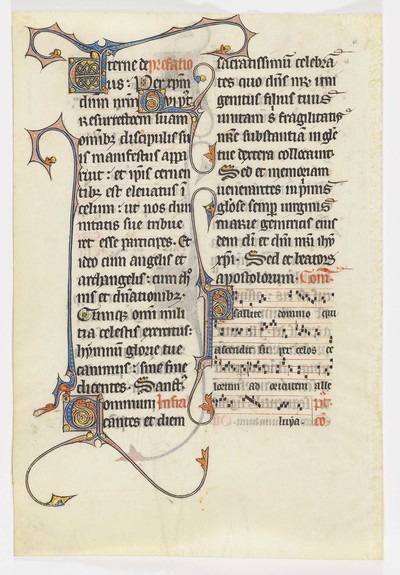 Eterne de prefatio
us : Per xp̄m
dn̄m nr̄m Qui pꝰt
Resurrectōem suam
omībꝫ discipulis su
is manifestus appa
ruit : et ip̄is cernen
tibꝫ est eleuatus ī
celum : ut nos diui
nitatis sue tribue
ret esse p̱ticipes. Et
ideo cum angelis et
archangelis : cum th̓o
nis et dn̄ationibꝫ.
Cumqꝫ om̄i mili
tia celestis exercitus :
hymnum glorie tue
canimus : sine fine
dicentes. Sanctꝰ
Communi Infra
cantes et diem
sacratissimū celebrā
tes quo dn̄s nr̄ uni
genitus filius tuus
unitam s̄ fragilitatis
nr̄e substantiā in gl̄e
tue dextera collocauit.
Sed et memoriam
uenerantes in p̓mis
gl̄ose semp̱ uirginis
marie genitricis eius
dem di et dn̄i nr̄i ihū
xp̄i. Sed et beatorꝫ
apostolorum. Com̄.
Psallite domino qui
ascendit sup̱ celos ce
lorum ad orientem alle
luya. co